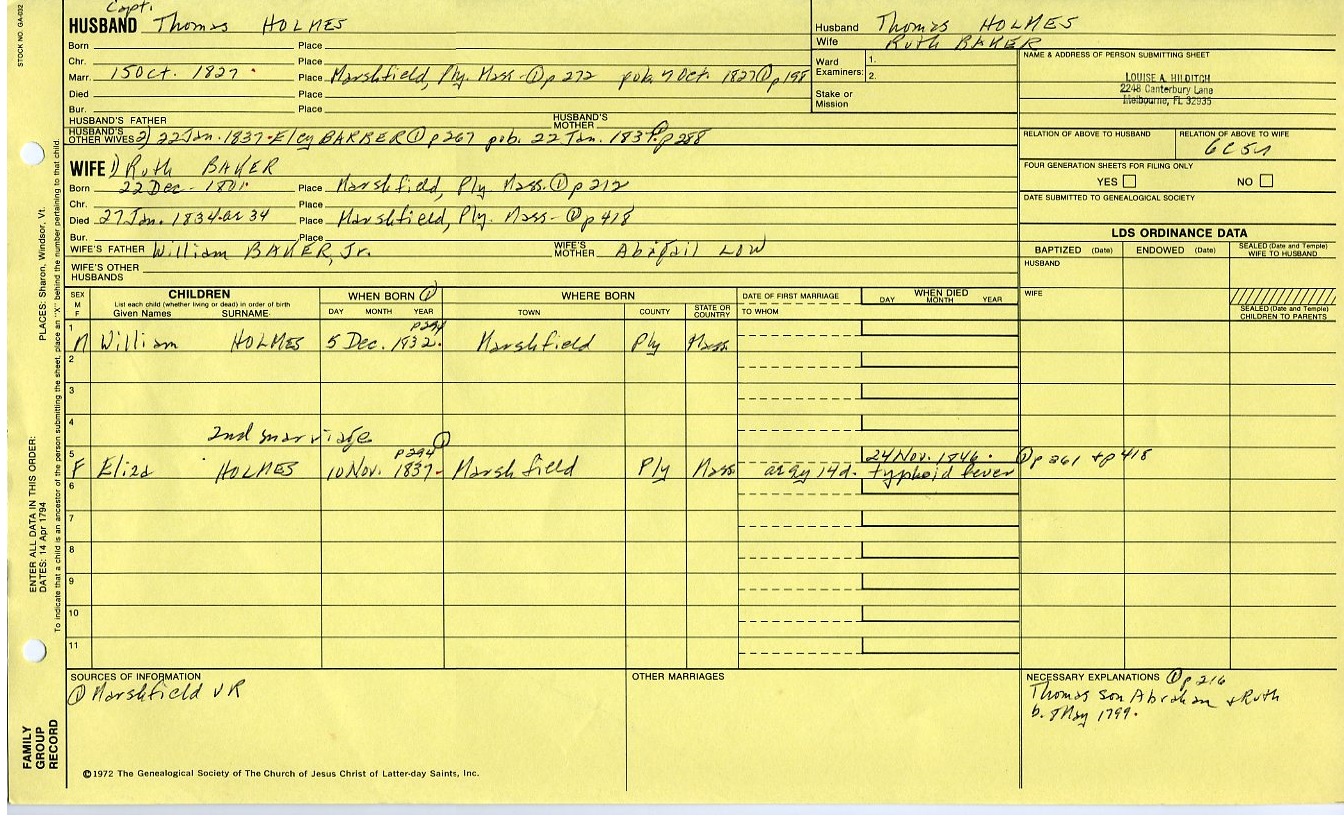 STOCK NO. GA-032
Capt.
HUSBAND Thomas HOLMES
Born Place
Chr. Place
Marr. 15 Oct. 1827 Place Marshfield, Ply. Mass - ① p 272 pub. 7 Oct. 1827 ① p 198
Died Place
Bur. Place
HUSBAND'S FATHER HUSBAND'S MOTHER
HUSBAND'S OTHER WIVES 2) 22 Jan. 1837 - Elcy BARBER ① p 267 pub. 22 Jan. 1837 p 288
WIFE 1) Ruth BAKER
Born 22 Dec - Place Marshfield, Ply. Mass. ① p 212
Chr. Place
Died 27 Jan. 1834 - ae 34 Place Marshfield, Ply. Mass - ① p 418
Bur. Place
WIFE'S FATHER William BAKER, Jr. WIFE'S MOTHER Abigail LOW
WIFE'S OTHER HUSBANDS
Husband Thomas HOLMES
Wife Ruth BAKER
Ward Examiners: 1.
2.
Stake or Mission
NAME & ADDRESS OF PERSON SUBMITTING SHEET
LOUISE A. HILDITCH
2248 Canterbury Lane
Melbourne, FL 32935
RELATION OF ABOVE TO HUSBAND RELATION OF ABOVE TO WIFE
6C5R
FOUR GENERATION SHEETS FOR FILING ONLY
YES NO
DATE SUBMITTED TO GENEALOGICAL SOCIETY
LDS ORDINANCE DATA
BAPTIZED (Date) ENDOWED (Date) SEALED (Date and Temple) WIFE TO HUSBAND
HUSBAND
WIFE
SEALED (Date and Temple) CHILDREN TO PARENTS
SEX M F CHILDREN List each child (whether living or dead) in order of birth Given Names SURNAME
WHEN BORN ① DAY MONTH YEAR
WHERE BORN TOWN COUNTY STATE OR COUNTRY
DATE OF FIRST MARRIAGE TO WHOM
WHEN DIED DAY MONTH YEAR
p 294
1 M William HOLMES 5 Dec. 1832. Marshfield Ply Mass
2
3
4
2nd marriage ①
p 294
5 F Eliza HOLMES 10 Nov. 1837 - Marshfield Ply Mass a 9y 14d. 24 Nov. 1846. typhoid fever ① p 361 + p 418
6
7
8
9
10
11
SOURCES OF INFORMATION
① Marshfield VR
OTHER MARRIAGES
NECESSARY EXPLANATIONS ① p 216
Thomas son Abraham & Ruth
b. 8 May 1799.
©1972 The Genealogical Society of The Church of Jesus Christ of Latter-day Saints, Inc.
FAMILY GROUP RECORD
ENTER ALL DATA IN THIS ORDER:
DATES: 14 Apr 1794
PLACES: Sharon, Windsor, Vt.
To indicate that a child is an ancestor of the person submitting the sheet, place an "X" behind the number pertaining to that child.